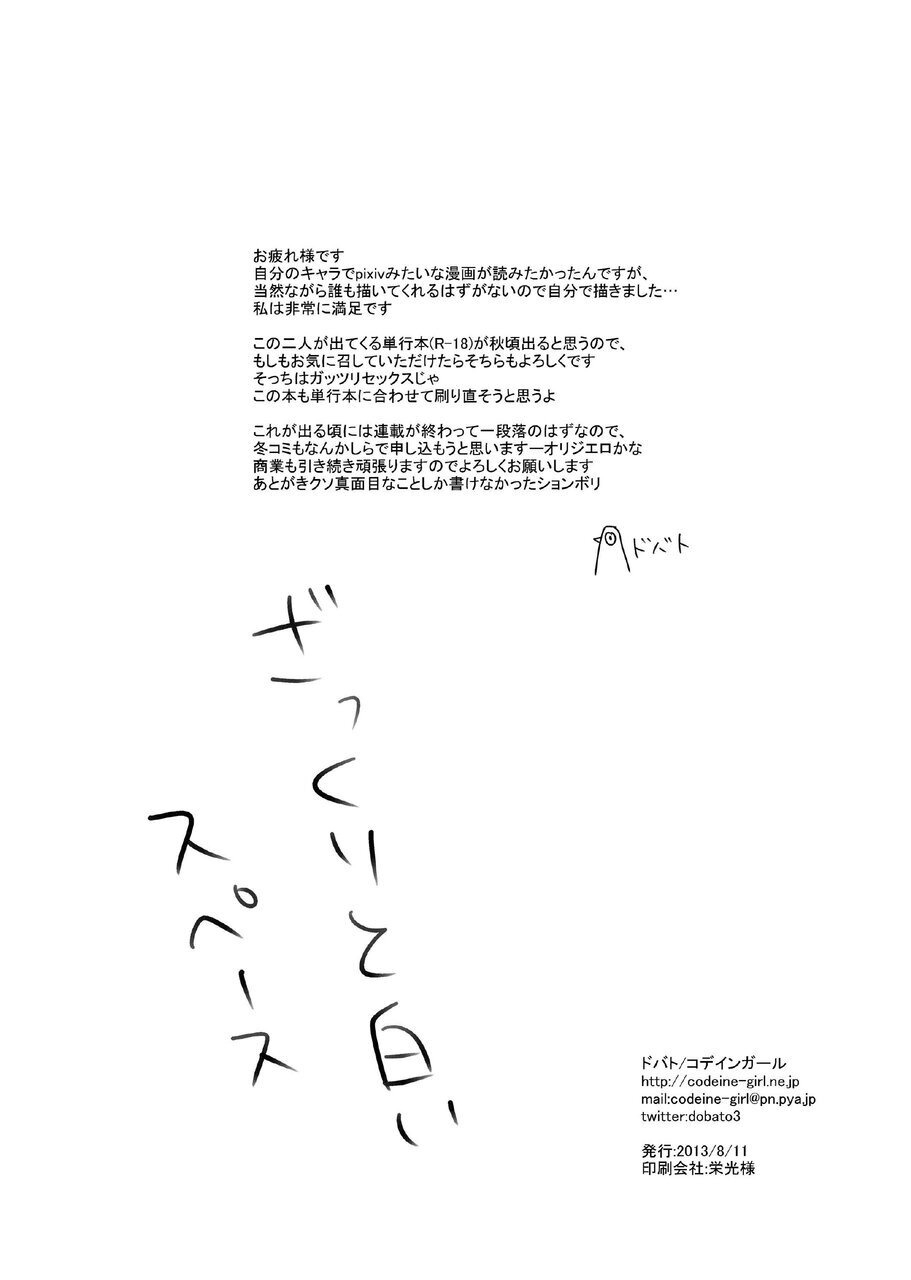 お疲れ様です
自分のキャラでpixivみたいな漫画が読みたかったんですが、
当然ながら誰も描いてくれるはずがないので自分で描きました…
私は非常に満足です
この二人が出てくる単行本(R-18)が秋頃出ると思うので、
もしもお気に召していただけたらそちらもよろしくです
そっちはガッツリセックスじゃ
この本も単行本に合わせて刷り直そうと思うよ
これが出る頃には連載が終わって一段落のはずなので、
冬コミもなんかしらで申し込もうと思いますーオリジエロかな
商業も引き続き頑張りますのでよろしくお願いします
あとがきクソ真面目なことしか書けなかったションボリ
ドバト
ざっくりと白い
スペース
ドバト/コデインガール
http://codeine-girl.ne.jp
mail:codeine-girl@pn.pya.jp
twitter:dobato3
発行:2013/8/11
印刷会社:栄光様